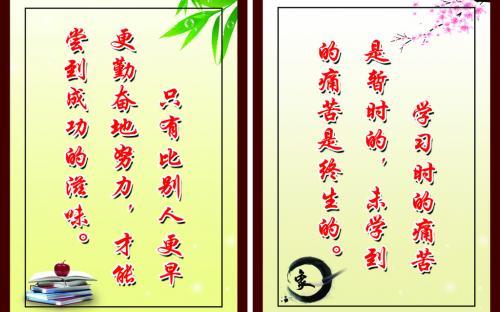 只有比别人更早
更勤奋地努力，才能
尝到成功的滋味。
学习时的痛苦
是暂时的，未学到
的痛苦是终生的。